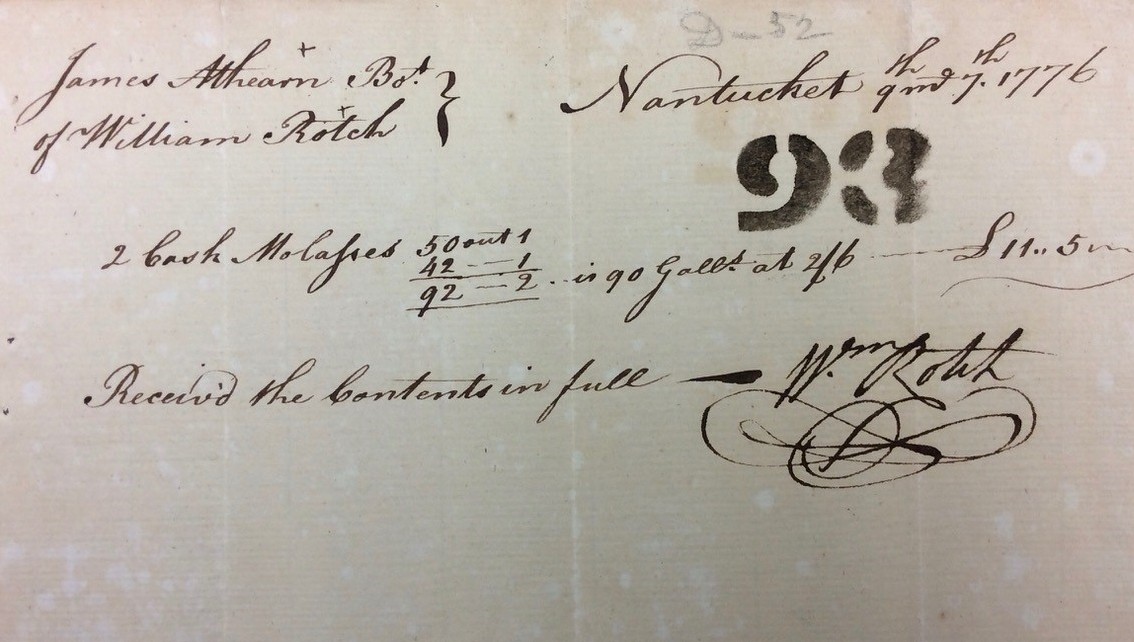 D - 52
James Athearn Bot.
of William Rotch
Nantucket 9th md 7th. 1776
93
2 Cask Molasses 50 out 1
42 -- 1
92 -- 2 .. is 90 Galls. at 2/6 -- £11.. 5 --
Receiv'd the Contents in full -- Wm. Rotch